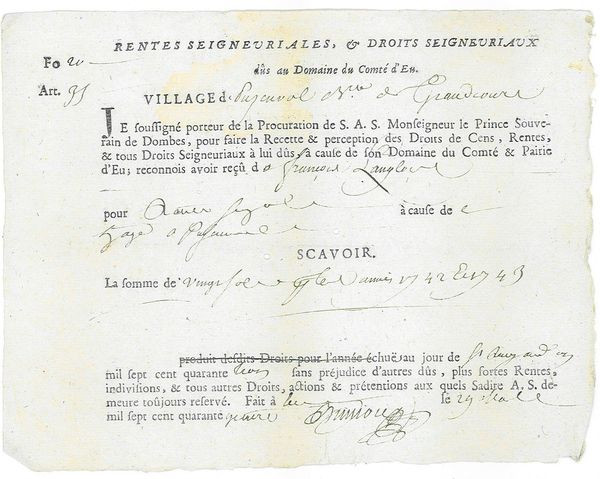 RENTES SEIGNEURIALES, & DROITS SEIGNEURIAUX
dûs au Domaine du Comté d'Eu.
Fo 20
Art. 35
VILLAGE de Puisenval de Grandcourt
JE soussigné porteur de la Procuration de S. A. S. Monseigneur le Prince Souve-
rain de Dombes, pour faire la Recette & perception des Droits de Cens, Rentes,
& tous Droits Seigneuriaux à lui dûs à cause de son Domaine du Comté & Pairie
d'Eu; reconnois avoir reçû de françois Langlois
pour à cause de
a
SCAVOIR.
La somme de Vingt sols années 1742 Et 1743
produit desdits Droits pour l'année échuë au jour de St Remy
mil sept cent quarante trois sans préjudice d'autres dûs, plus sortes Rentes,
indivisions, & tous autres Droits, actions & prétentions aux quels Sadite A. S. de-
meure toûjours reservé. Fait à Eu le 29
mil sept cent quarante quatre